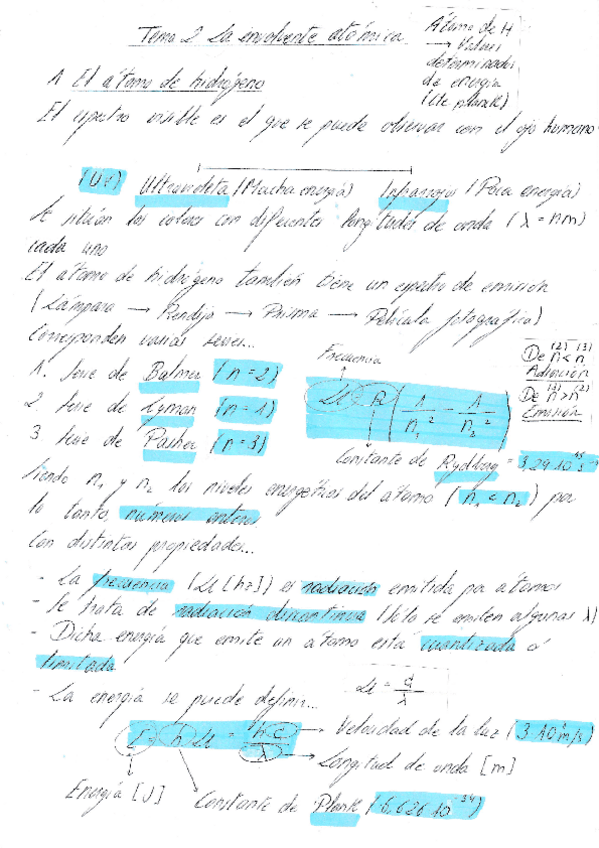 Tema 2 La envolvente atómica
Átomo de H
→ Valores
determinados
de energía
(Cte plank)
1. El átomo de hidrógeno
El espectro visible es el que se puede observar con el ojo humano
(Ur) Ultravioleta (Mucha energía) Infrarrojos (Poca energía)
Se sitúan los colores con diferentes longitudes de onda (λ = nm)
cada uno
El átomo de hidrógeno también tiene un espectro de emisión
(Lámpara → Rendija → Prisma → Película fotográfica)
Corresponden varias series...
1. Serie de Balmer (n = 2)
2. Serie de Lyman (n = 1)
3. Serie de Pasher (n = 3)
Frecuencia
μ = R (1/n₁² - 1/n₂²)
Constante de Rydberg = 3,29·10¹⁵ s⁻¹
(2) (3)
De n < n
Adsorción
(3) (2)
De n > n
Emisión
Siendo n₁ y n₂ los niveles energéticos del átomo (n₁ < n₂) por
lo tanto, números enteros
Con distintas propiedades...
- La frecuencia (μ [hz]) es radiación emitida por átomos
- Se trata de radiación discontinua (Sólo se emiten algunas λ)
- Dicha energía que emite un átomo está cuantizada o
limitada
- La energía se puede definir...
μ = c/λ
E = h μ = h c/λ → Velocidad de la luz (3·10⁸ m/s)
→ Longitud de onda [m]
Energía [J] Constante de Plank (6,626·10⁻³⁴)